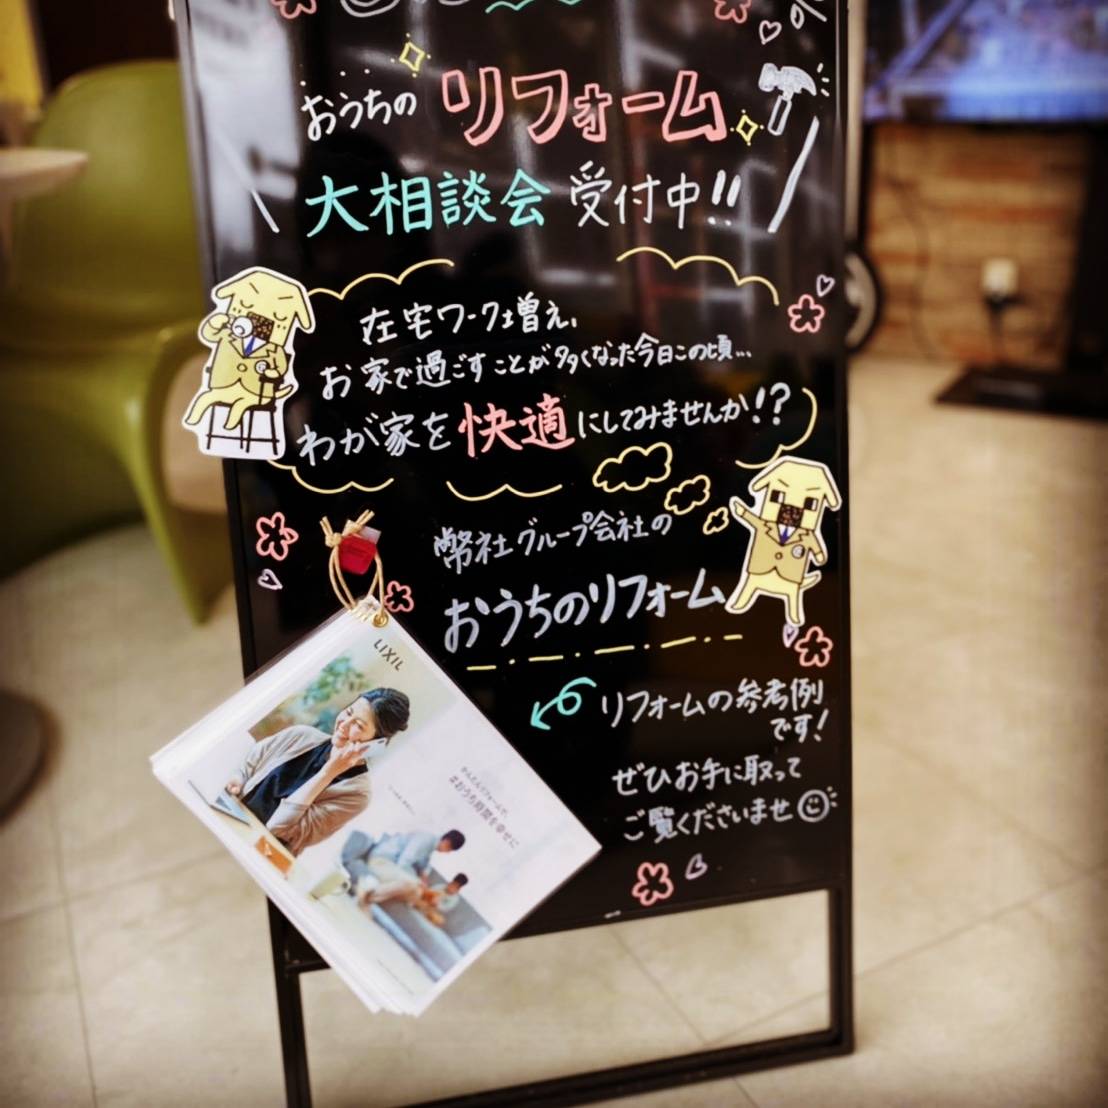 おうちの リフォーム
大相談会 受付中!!
在宅ワーク増え、
お家で過ごすことが多くなった今日この頃…
わが家を快適にしてみませんか!?
弊社グループ会社の
おうちのリフォーム
リフォームの参考例
です!
ぜひお手に取って
ご覧くださいませ
LIXIL
かんたんリフォームで、
#おうち時間を幸せに